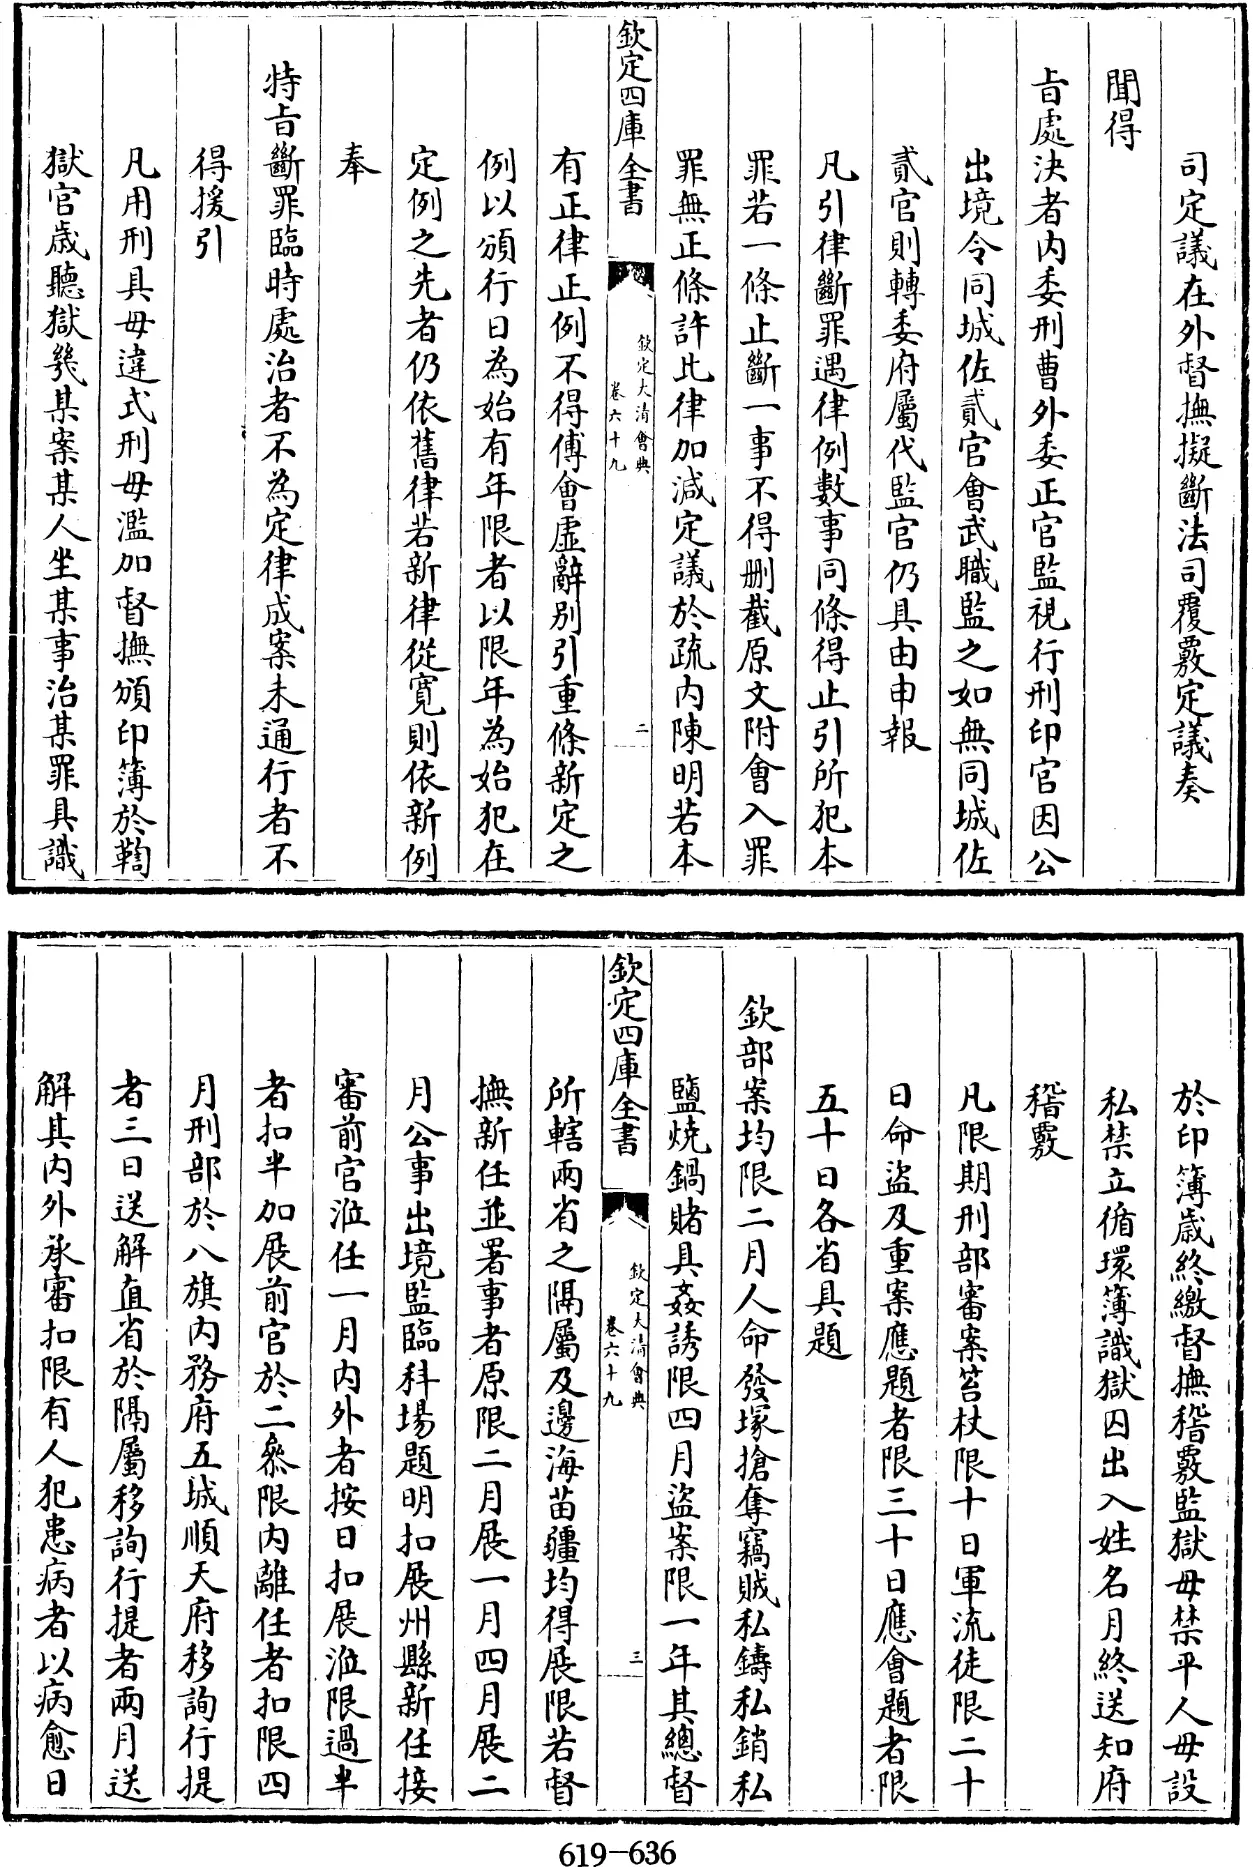 司定議在外督撫擬斷法司覆覈定議奏
聞得
旨處決者内委刑曹外委正官監視行刑印官因公
出境令同城佐貳官會武職監之如無同城佐
貳官則轉委府屬代監官仍具由申報
凡引律斷罪遇律例數事同條得止引所犯本
罪若一條止斷一事不得刪截原文附會入罪
罪無正條許比律加減定議於疏内陳明若本
欽定四庫全書
欽定大清會典
卷六十九
二
有正律正例不得傅會虛辭别引重條新定之
例以頒行日為始有年限者以限年為始犯在
定例之先者仍依舊律若新律從寛則依新例
奉
特旨斷罪臨時處治者不為定律成案未通行者不
得援引
凡用刑具毋違式刑毋濫加督撫頒印簿於鞫
獄官歳聽獄幾某案某人坐某事治某罪具識
於印簿歳終繳督撫稽覈監獄毋禁平人毋設
私禁立循環簿識獄囚出入姓名月終送知府
稽覈
凡限期刑部審案笞杖限十日軍流徒限二十
日命盜及重案應題者限三十日應會題者限
五十日各省具題
欽部案均限二月人命發塚搶奪竊賊私鑄私銷私
鹽燒鍋賭具姦誘限四月盜案限一年其總督
欽定四庫全書
欽定大清會典
卷六十九
三
所轄兩省之隔屬及邊海苗疆均得展限若督
撫新任並署事者原限二月展一月四月展二
月公事出境監臨科場題明扣展州縣新任接
審前官涖任一月内外者按日扣展涖限過半
者扣半加展前官於二叅限内離任者扣限四
月刑部於八旗内務府五城順天府移詢行提
者三日送解直省於隔屬移詢行提者兩月送
解其内外承審扣限有人犯患病者以病愈日
619-636